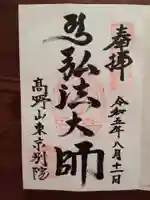 奉拝
令和五年八月十二日
弘法大師
高野山東京別院